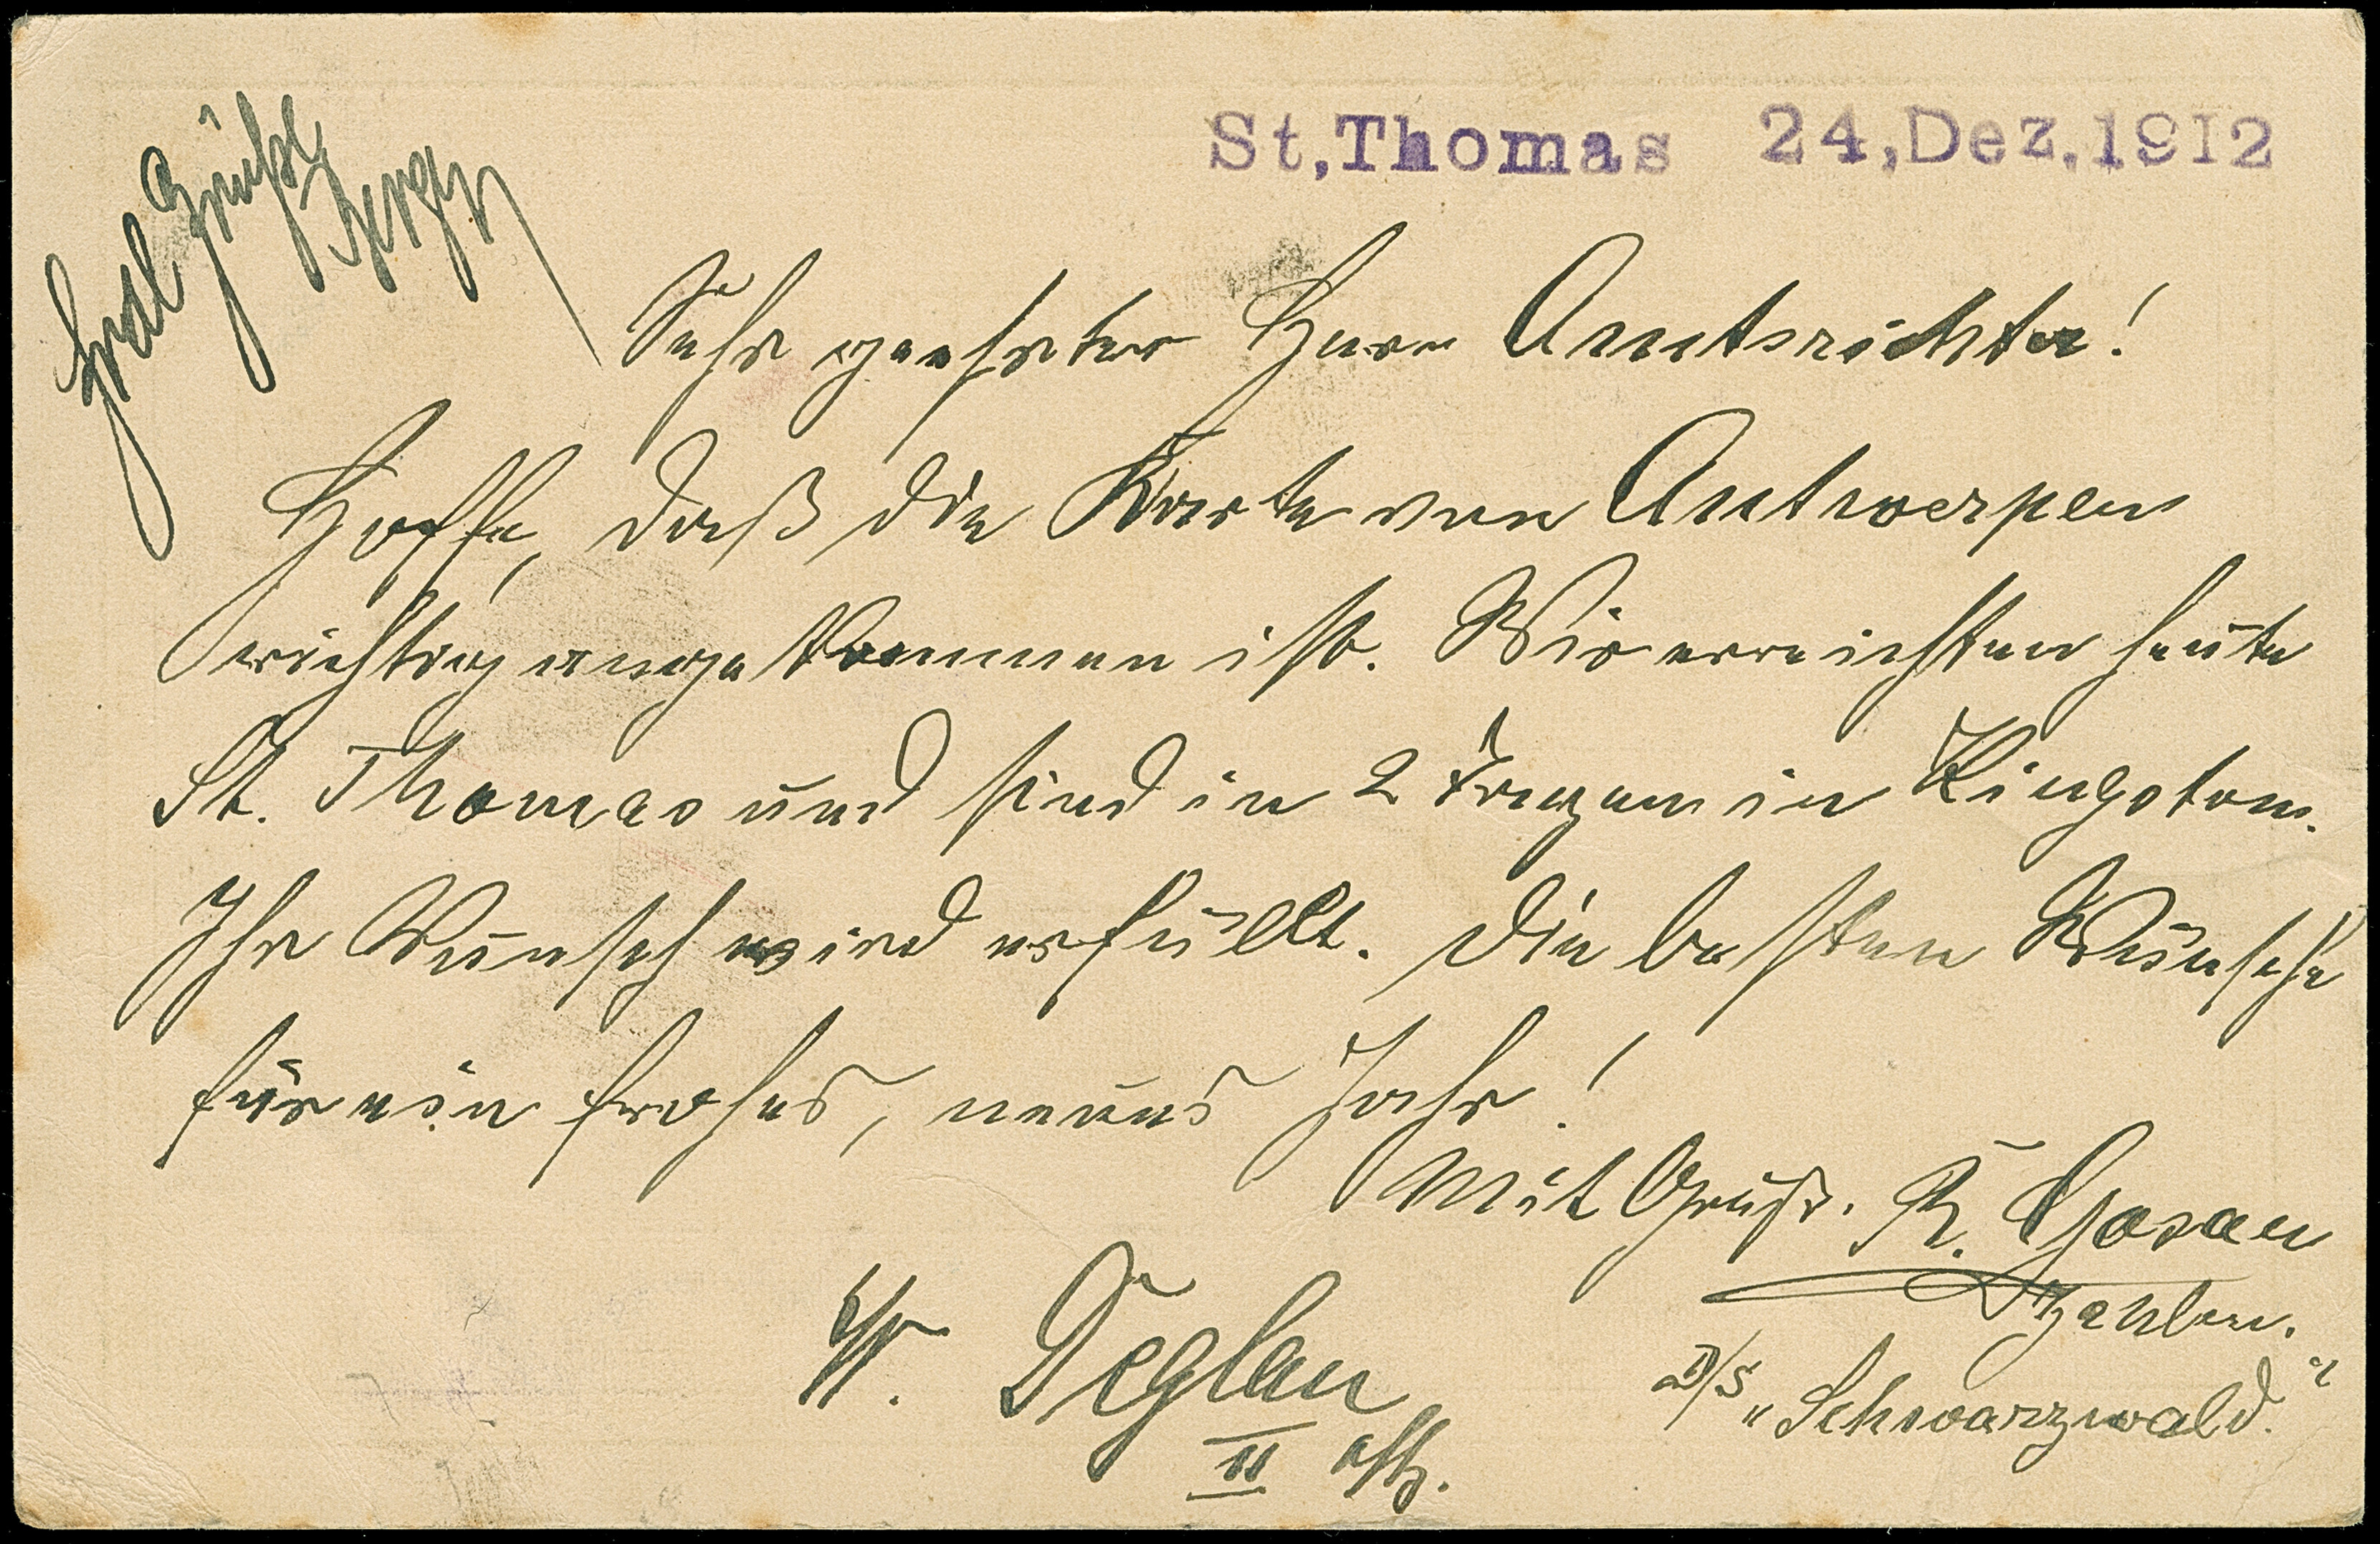 St, Thomas 24, Dez, 1912
Herzl. Grüße
Sehr geehrter Herr Amtsrichter!
Hoffe, daß die Karte von Antwerpen
richtig angekommen ist. Wir erreichten heute
St. Thomas und sind in 2 Tagen in Kingston.
Ihr Wunsch wird erfüllt. Die besten Wünsche
für ein frohes, neues Jahr!
Mit Gruß. K.
W. Deglau
II Offz.
D/S „Schwarzwald."